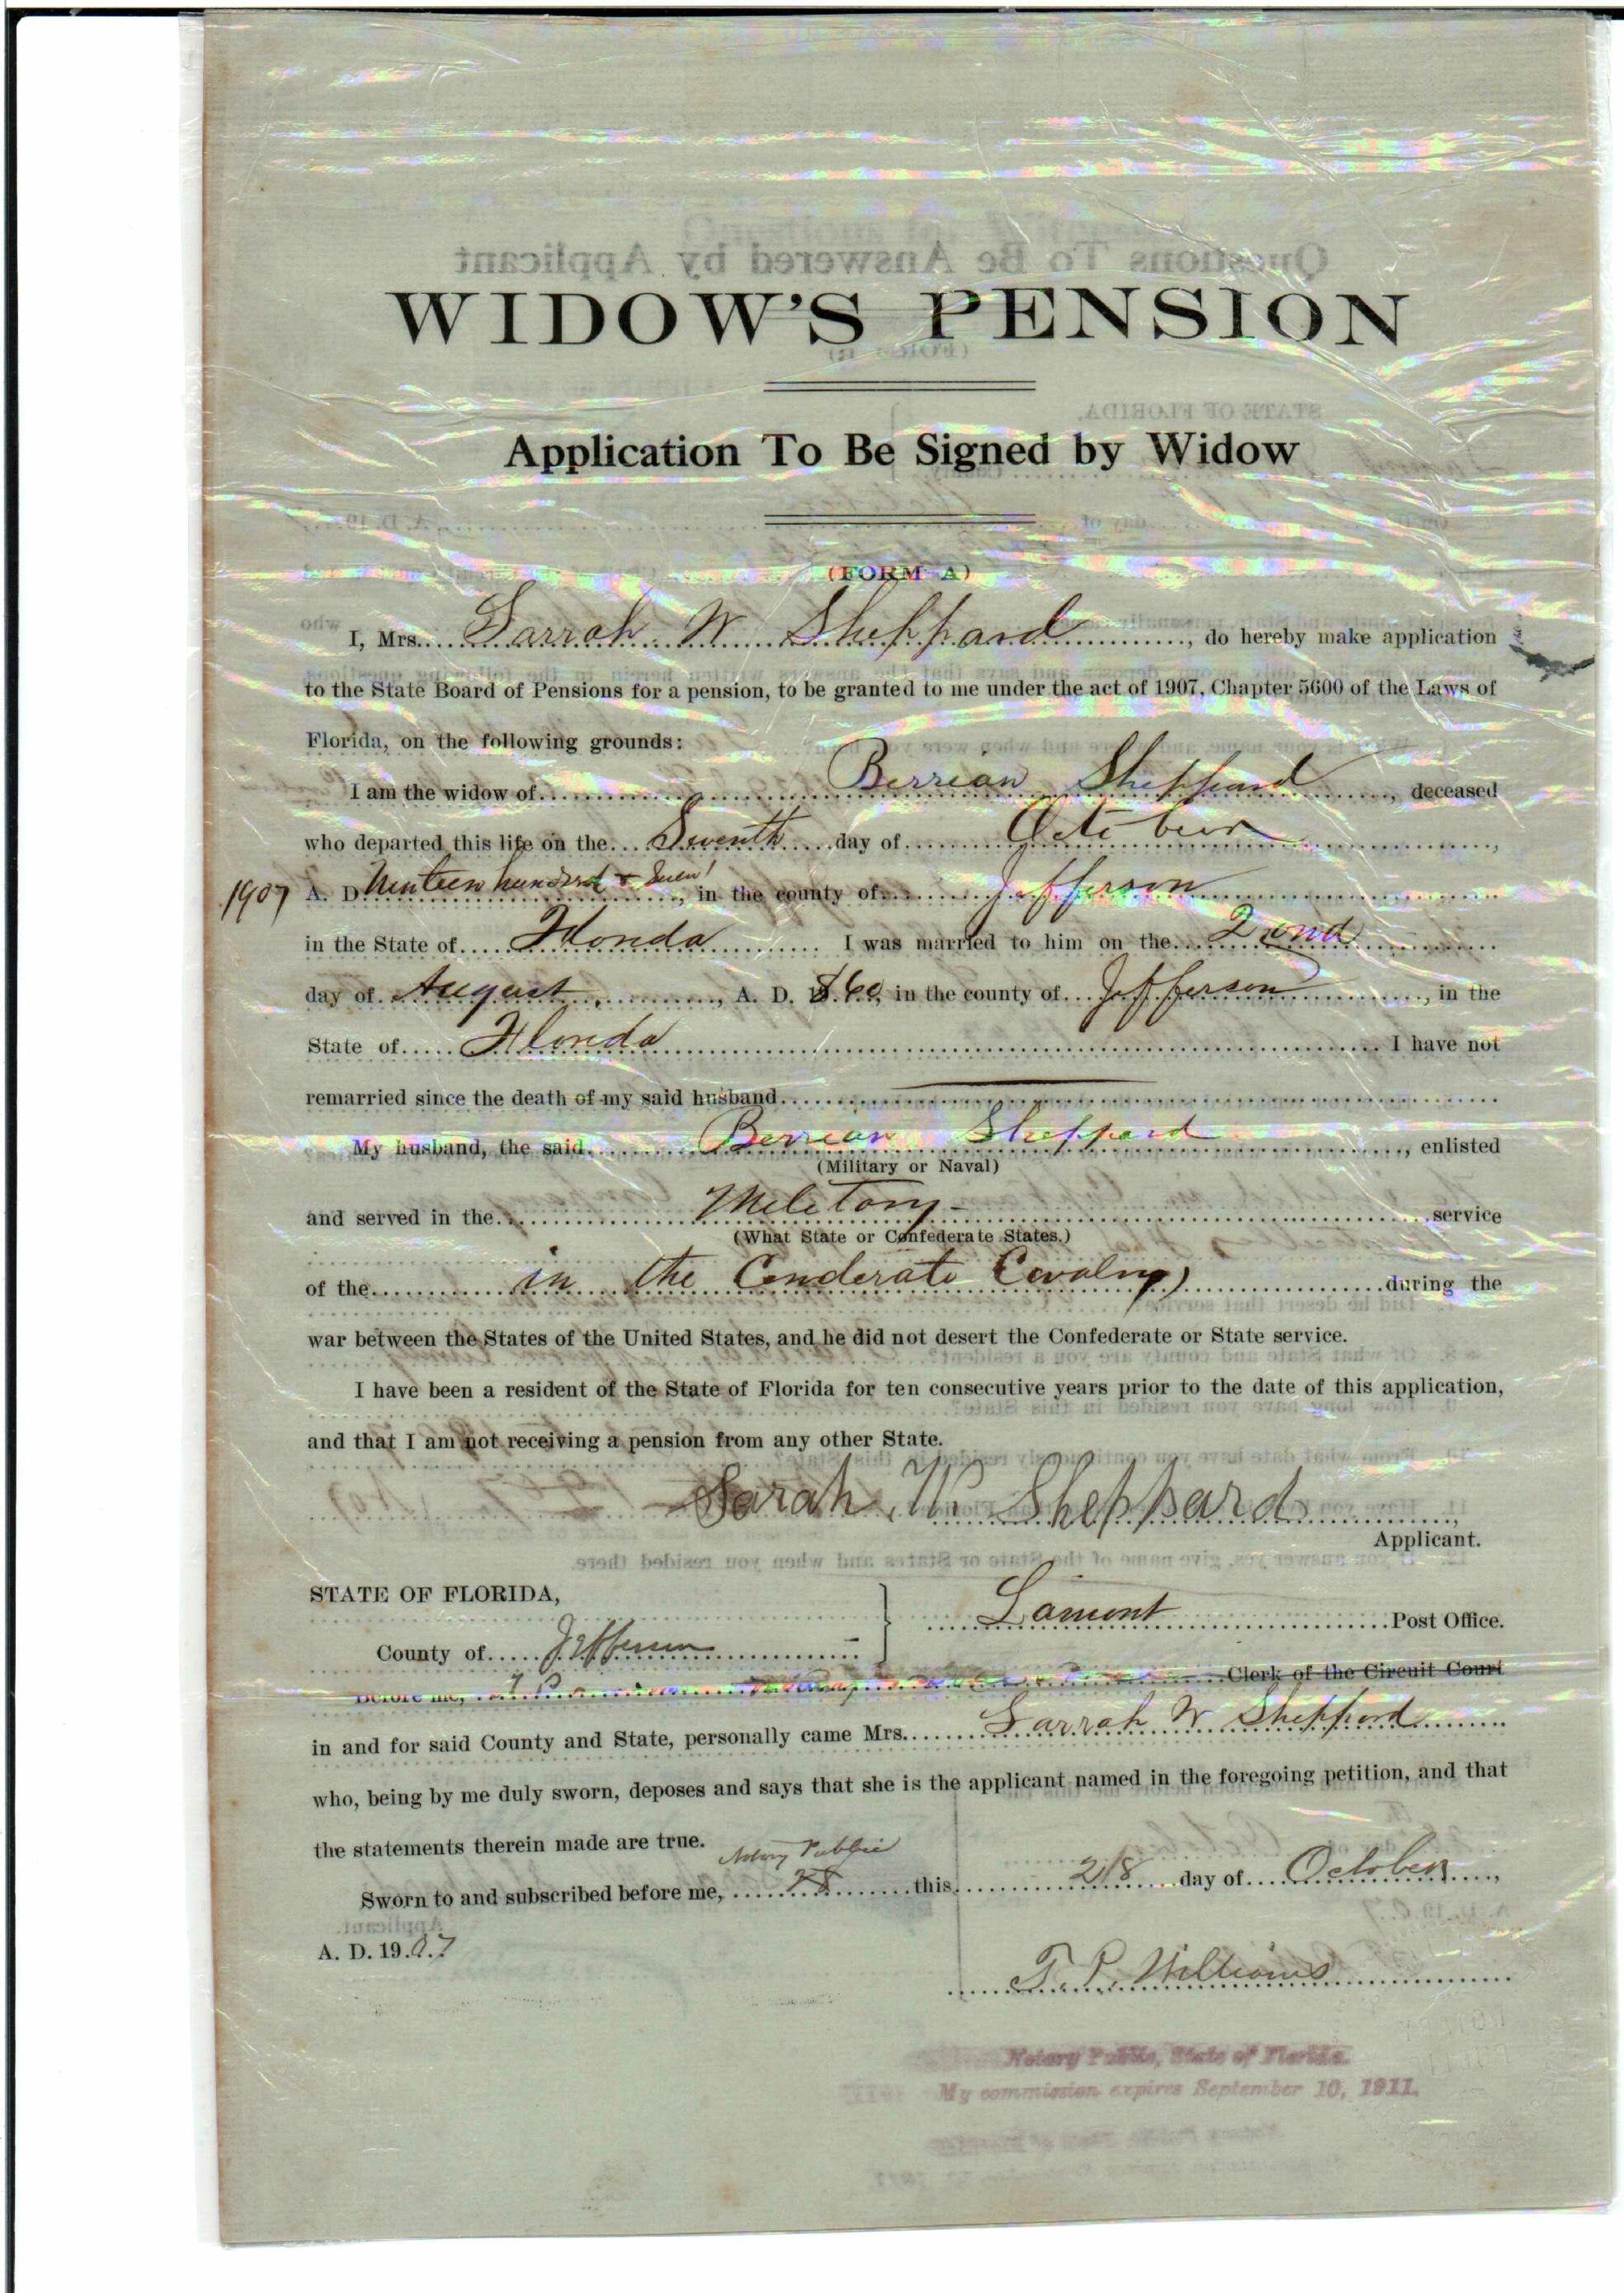 WIDOW'S PENSION
Application To Be Signed by Widow
(FORM A)
I, Mrs. Sarrah W Sheppard, do hereby make application
to the State Board of Pensions for a pension, to be granted to me under the act of 1907, Chapter 5600 of the Laws of
Florida, on the following grounds:
I am the widow of Berrian Sheppard, deceased
who departed this life on the Seventh day of October,
1907 A. D. hundred &, in the county of Jefferson
in the State of Florida I was married to him on the 2ond
day of August, A. D. 1860, in the county of Jefferson, in the
State of Florida I have not
remarried since the death of my said husband
My husband, the said Berrian Sheppard, enlisted
(Military or Naval)
and served in the Miletary service
(What State or Confederate States.)
of the in the Conderate Cavalry during the
war between the States of the United States, and he did not desert the Confederate or State service.
I have been a resident of the State of Florida for ten consecutive years prior to the date of this application,
and that I am not receiving a pension from any other State.
Sarah W. Sheppard,
Applicant.
STATE OF FLORIDA,
Lamont Post Office.
County of Jefferson
Before me, Clerk of the Circuit Court
in and for said County and State, personally came Mrs. Sarrah W Sheppard
who, being by me duly sworn, deposes and says that she is the applicant named in the foregoing petition, and that
the statements therein made are true.
Notary Public
Sworn to and subscribed before me, 28 this 28 day of October,
A. D. 1907
T. P. Williams
Notary Public, State of Florida.
My commission expires September 10, 1911.